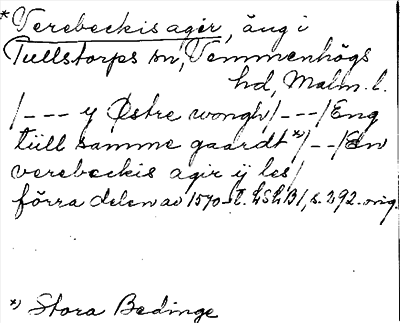 *Verebeckis agir, äng i
Tullstorps sn, Vemmenhögs
hd, Malm. l.
/--- y Østre wongh/---/Eng
tüll samme gaardt*)/--/En
verebeckis agir ÿ les/
förra delen av 1570-t. LSLB1, s. 292. orig.
*) Stora Bedinge